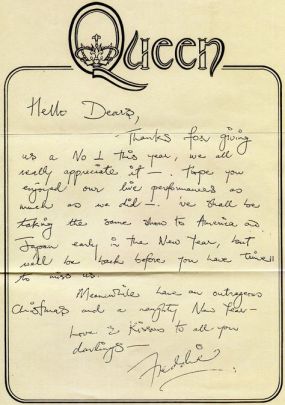 Queen
Hello Dears,
Thanks for giving
us a No 1 this year, we all
really appreciate it —. Hope you
enjoyed our live performances as
much as we did —. We shall be
taking the same show to America and
Japan early in the New Year, but
will be back before you have time
to miss us.
Meanwhile have an outrageous
Christmas and a naughty New Year —
Love & Kisses to all you
darlings —
Freddie